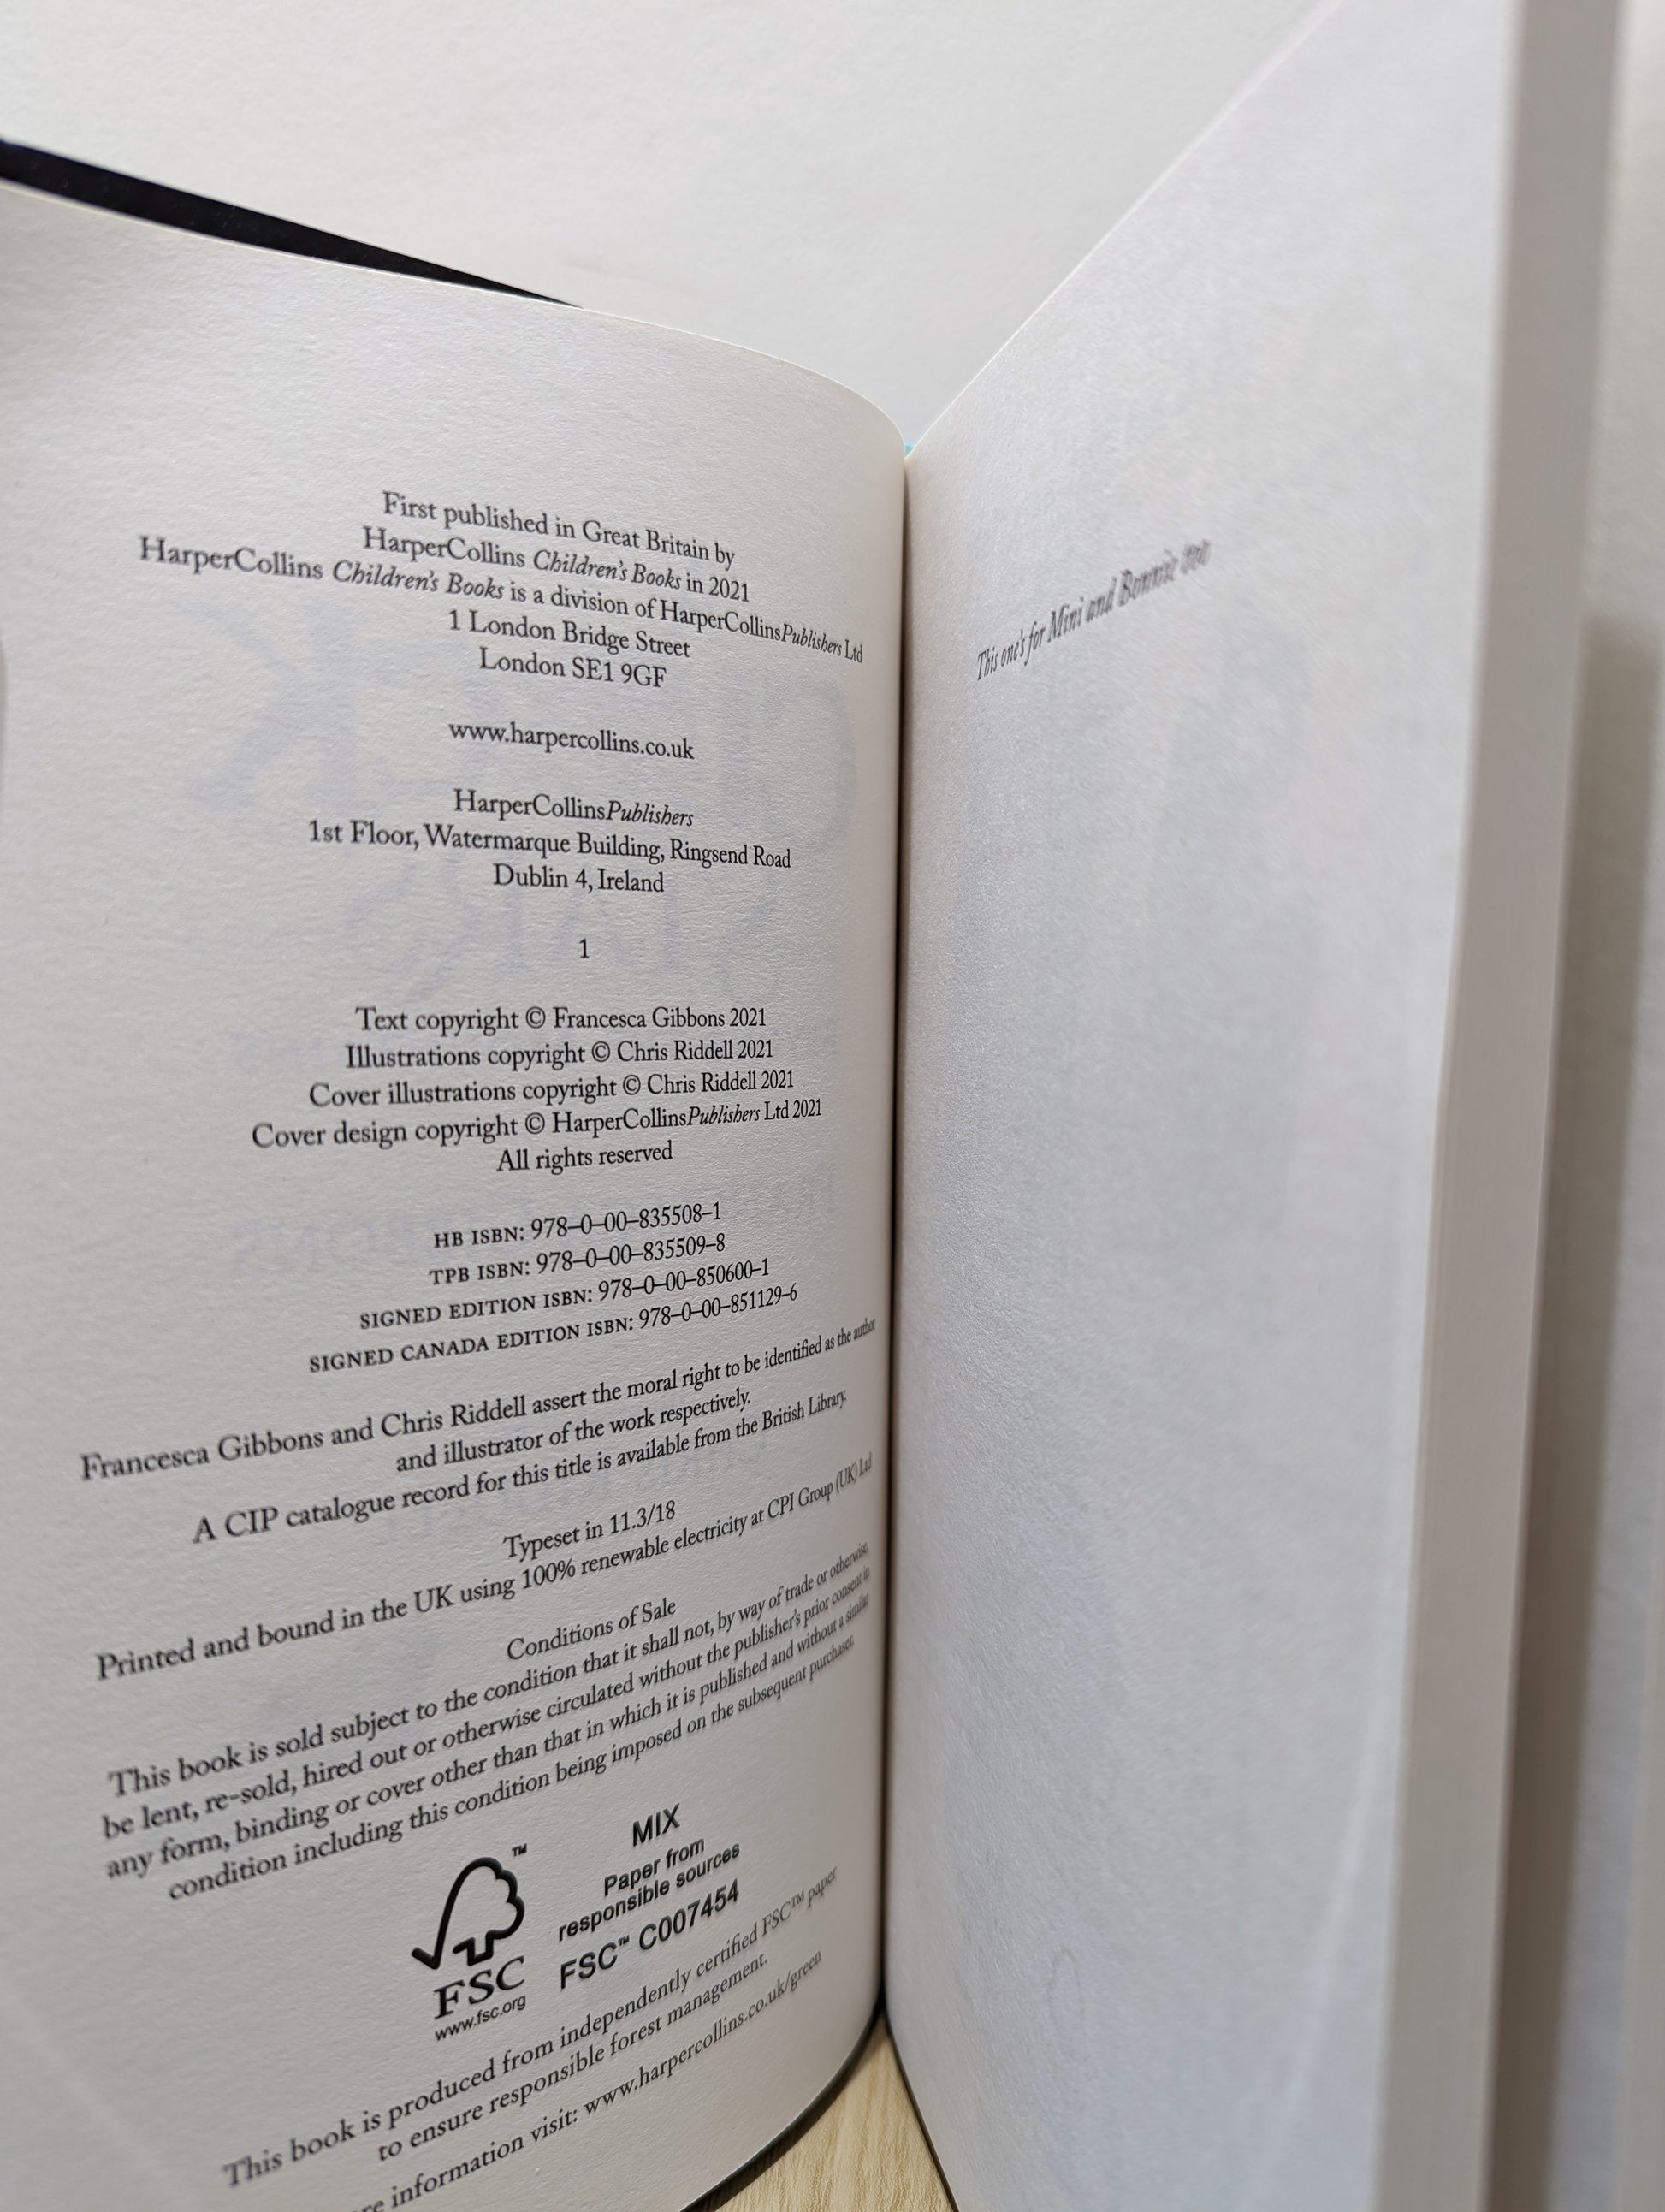 First published in Great Britain by
HarperCollins Children's Books in 2021
HarperCollins Children's Books is a division of HarperCollinsPublishers Ltd
1 London Bridge Street
London SE1 9GF
www.harpercollins.co.uk
HarperCollinsPublishers
1st Floor, Watermarque Building, Ringsend Road
Dublin 4, Ireland
1
Text copyright © Francesca Gibbons 2021
Illustrations copyright © Chris Riddell 2021
Cover illustrations copyright © Chris Riddell 2021
Cover design copyright © HarperCollinsPublishers Ltd 2021
All rights reserved
HB ISBN: 978–0–00–835508–1
TPB ISBN: 978–0–00–835509–8
SIGNED EDITION ISBN: 978–0–00–850600–1
SIGNED CANADA EDITION ISBN: 978–0–00–851129–6
Francesca Gibbons and Chris Riddell assert the moral right to be identified as the author
and illustrator of the work respectively.
A CIP catalogue record for this title is available from the British Library.
Typeset in 11.3/18
Printed and bound in the UK using 100% renewable electricity at CPI Group (UK) Ltd
Conditions of Sale
This book is sold subject to the condition that it shall not, by way of trade or otherwise,
be lent, re-sold, hired out or otherwise circulated without the publisher's prior consent in
any form, binding or cover other than that in which it is published and without a similar
condition including this condition being imposed on the subsequent purchaser.
FSC
™
www.fsc.org
MIX
Paper from
responsible sources
FSC™ C007454
This book is produced from independently certified FSC™ paper
to ensure responsible forest management.
information visit: www.harpercollins.co.uk/green
This one's for Mini and Bonnie